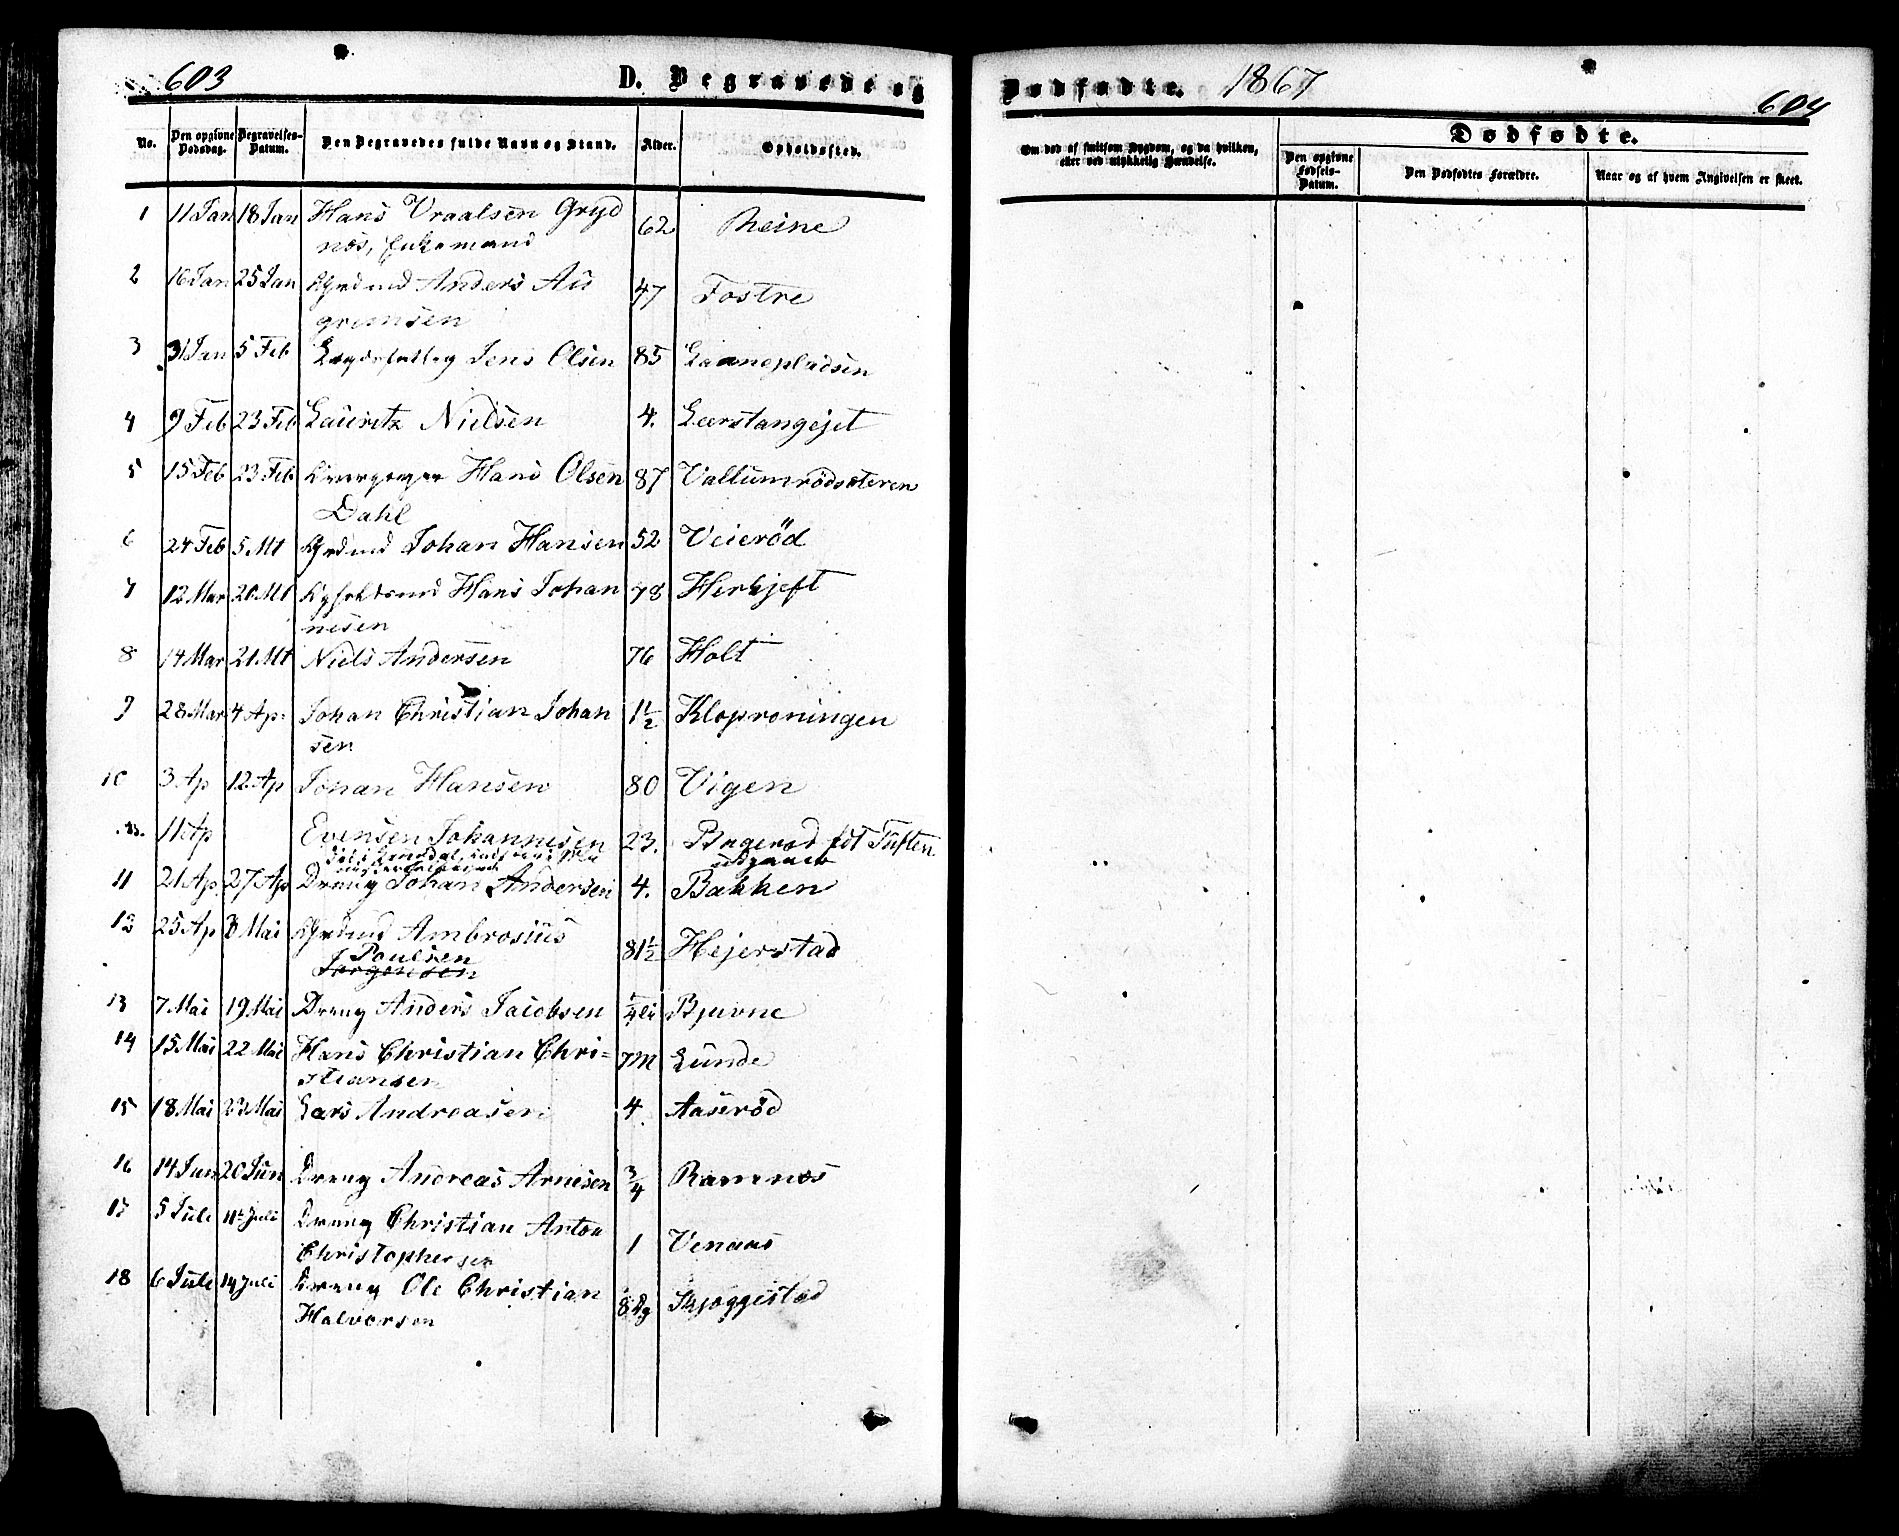 603
D. Begravede og
Dødfødte. 1867
604
No.
Den opgivne Dødsdag.
Begravelses-Datum.
Den Begravedes fulde Navn og Stand.
Alder.
Opholdssted.
Om død af smitsom Sygdom, og da hvilken, eller ved ulykkelig Hændelse.
Dødfødte.
Den opgivne Fødsels-Datum.
Den Dødfødtes Forældre.
Naar og af hvem Angivelsen er skeet.
1 11 Jan 18 Jan Hans Vraalsen Gryd 62 Reine
nös, Enkemand
2 16 Jan 25 Jan Grdmd Anders As 47 Fostre
grimsen
3 31 Jan 5 Feb Lægdsfattig Jens Olsen 85 Laanepladsen
4 9 Feb 23 Feb Lauritz Nielsen 4. Leerstangejet
5 15 Feb 23 Feb Hans Olsen 87 Vallumrödsæteren
Dahl
6 24 Feb 5 Mt Grdmd Johan Hansen 52 Veieröd
7 12 Mar 20 Mt Hans Johan 78
nesen
8 14 Mar 21 Mt Niels Andersen 76 Holt
9 28 Mar 4 Ap: Johan Christian Johan 1½ Kloproningen
sen
10 3 Ap 12 Ap Johan Hansen 80 Vigen
11 Ap Evensen Johannesen 23. födt Tuften
11 21 Ap 27 Ap Dreng Johan Andersen 4. Bakken
12 25 Ap 8 Mai Grdmd Ambrosius 81½ Hejerstad
Poulsen
Jörgensen
13 7 Mai 19 Mai Dreng Anders Jacobsen ¼ Bjuvne
14 15 Mai 22 Mai Hans Christian Chri= 7M Lunde
stiansen
15 18 Mai 23 Mai Lars Andreasen 4. Aaseröd
16 14 Jun 20 Jun Dreng Andreas Arnesen ¾ Ramnæs
17 5 Juli 14 Juli Dreng Christian Anton 1 Venaas
Christophersen
18 6 Juli 14 Juli Dreng Ole Christian 8 Dg Skjæggestad
Halvorsen